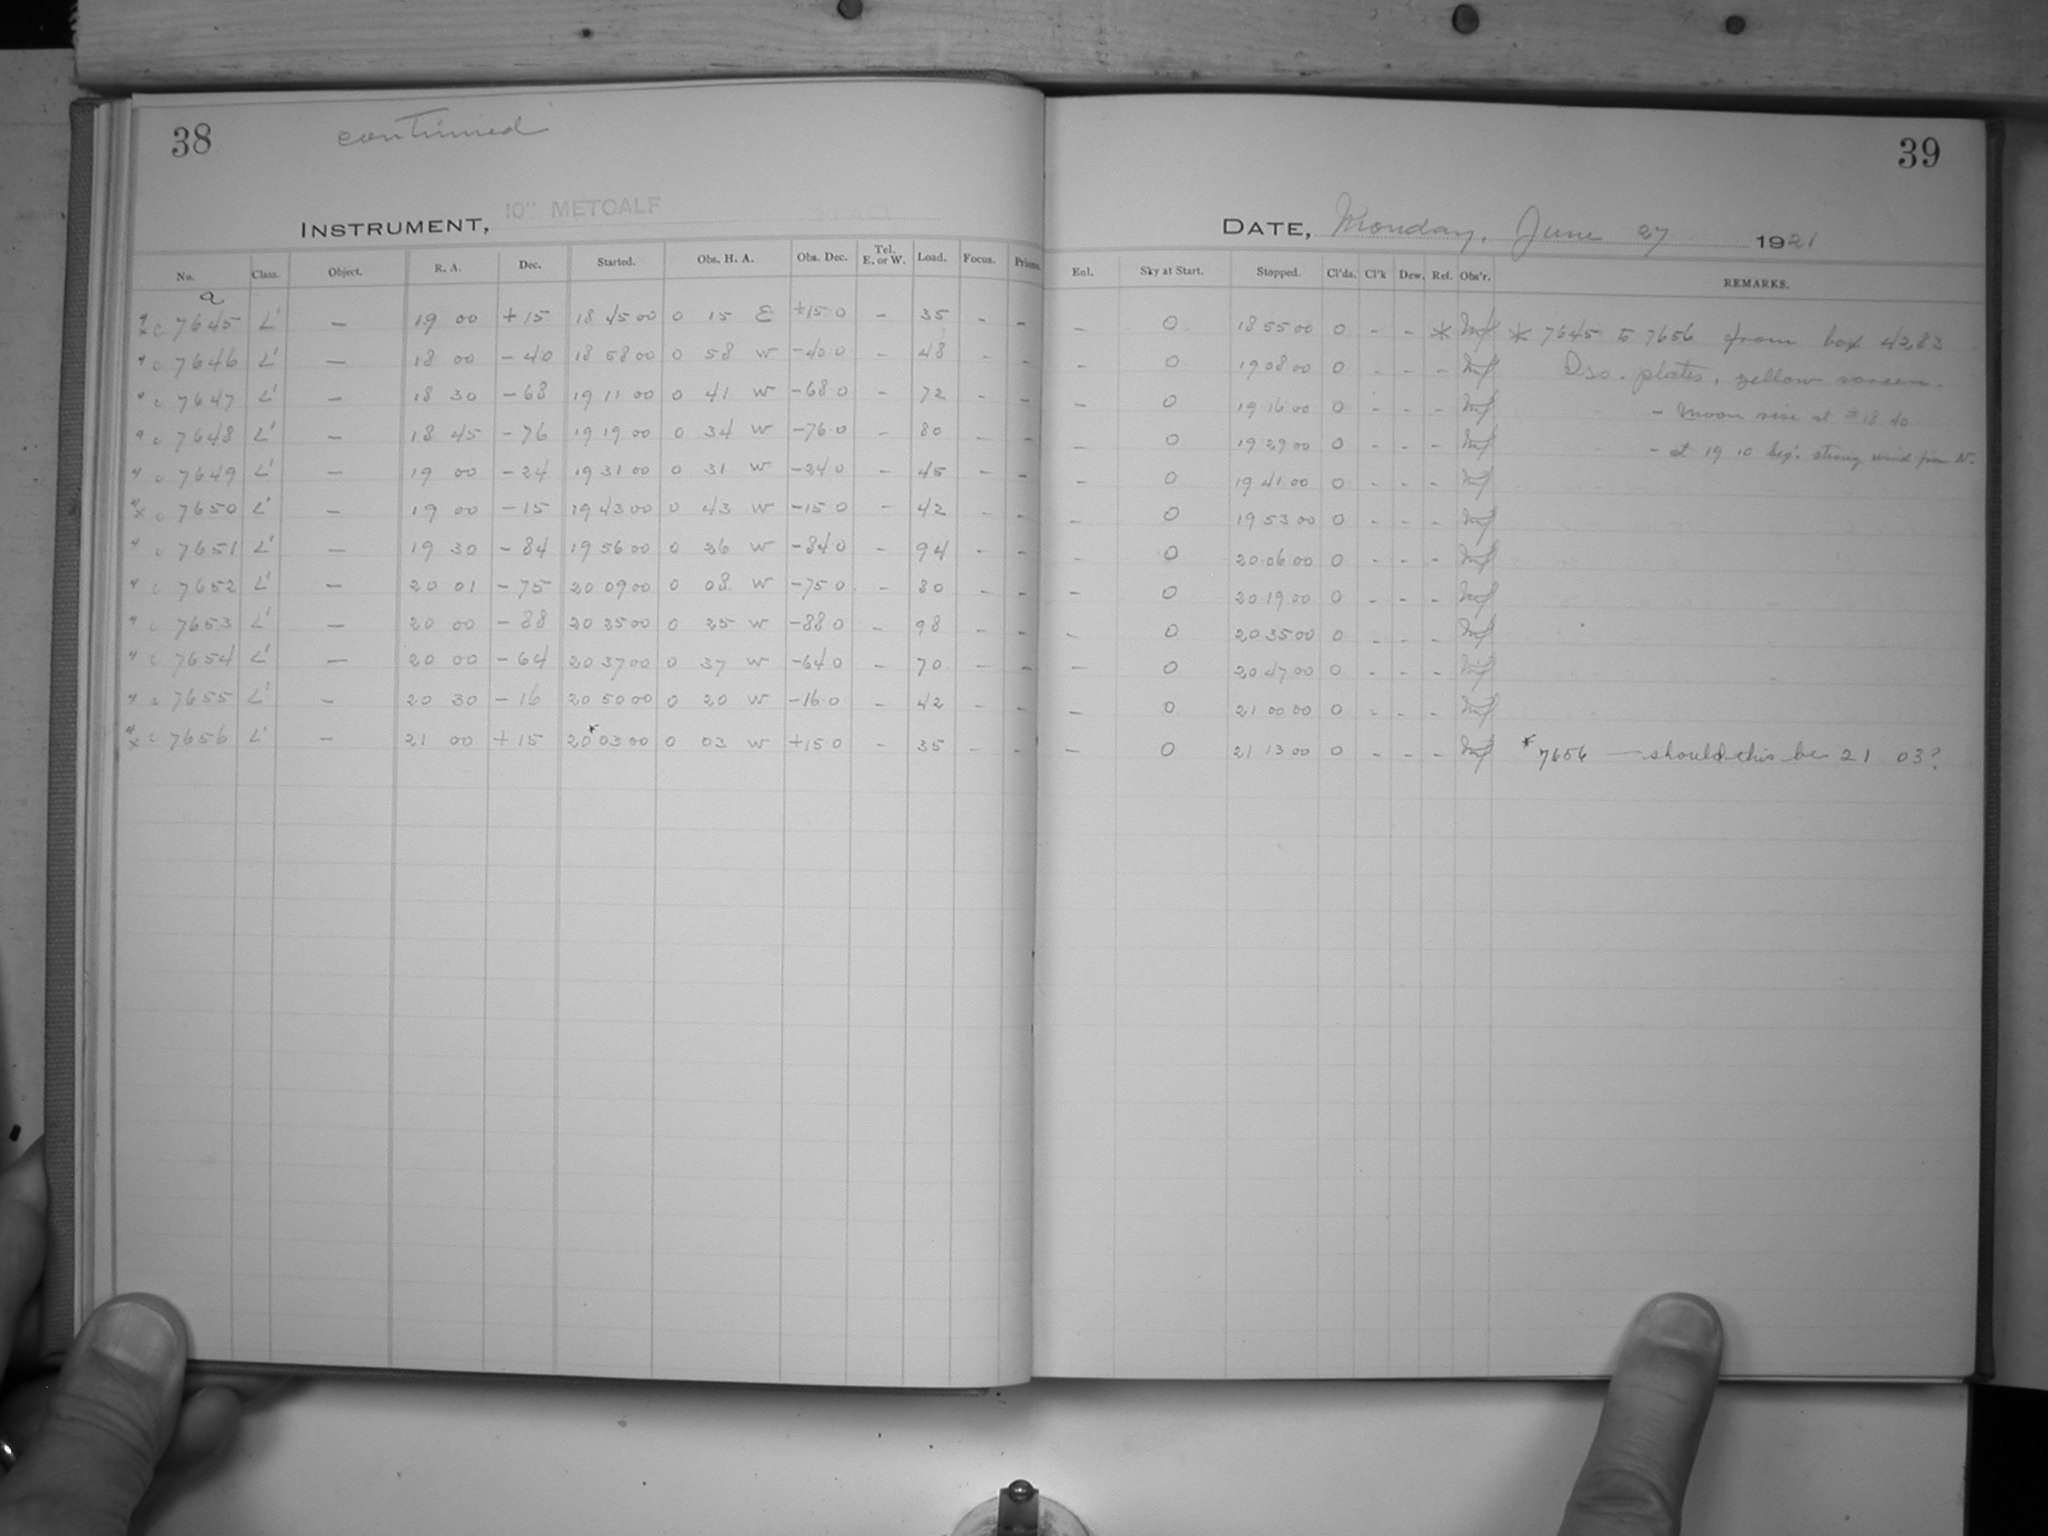 38 continued
39
INSTRUMENT, 10" METCALF
DATE, Monday, June 27 1921
No. Class. Object. R. A. Dec. Started. Obs. H. A. Obs. Dec. Tel. E. or W. Load. Focus. Prisms. Enl. Sky at Start. Stopped. Cl'ds. Cl'k Dew. Ref. Obs'r. REMARKS.
a
c 7645 L' — 19 00 +15 18 45 00 0 15 E +15 0 - 35 - - - 0 18 55 00 0 - - * * 7645 to 7656 from box 4283
c 7646 L' — 18 00 -40 18 58 00 0 58 W -40 0 - 48 - - - 0 19 08 00 0 - - - Iso. plates, yellow screen.
c 7647 L' — 18 30 -68 19 11 00 0 41 W -68 0 - 72 - - - 0 19 16 00 0 - - - - Moon rise at 18 40
c 7648 L' — 18 45 -76 19 19 00 0 34 W -76 0 - 80 - - - 0 19 29 00 0 - - - - at 19 10 beg. strong wind from N.
c 7649 L' — 19 00 -24 19 31 00 0 31 W -24 0 - 45 - - - 0 19 41 00 0 - - -
c 7650 L' — 19 00 -15 19 43 00 0 43 W -15 0 - 42 - - - 0 19 53 00 0 - - -
c 7651 L' — 19 30 -84 19 56 00 0 26 W -84 0 - 94 - - - 0 20 06 00 0 - - -
c 7652 L' — 20 01 -75 20 09 00 0 08 W -75 0 - 80 - - - 0 20 19 00 0 - - -
c 7653 L' — 20 00 -88 20 25 00 0 25 W -88 0 - 98 - - - 0 20 35 00 0 - - -
c 7654 L' — 20 00 -64 20 37 00 0 37 W -64 0 - 70 - - - 0 20 47 00 0 - - -
c 7655 L' — 20 30 -16 20 50 00 0 20 W -16 0 - 42 - - - 0 21 00 00 0 - - -
c 7656 L' — 21 00 +15 20* 03 00 0 03 W +15 0 - 35 - - - 0 21 13 00 0 - - - * 7656 — should this be 21 03?